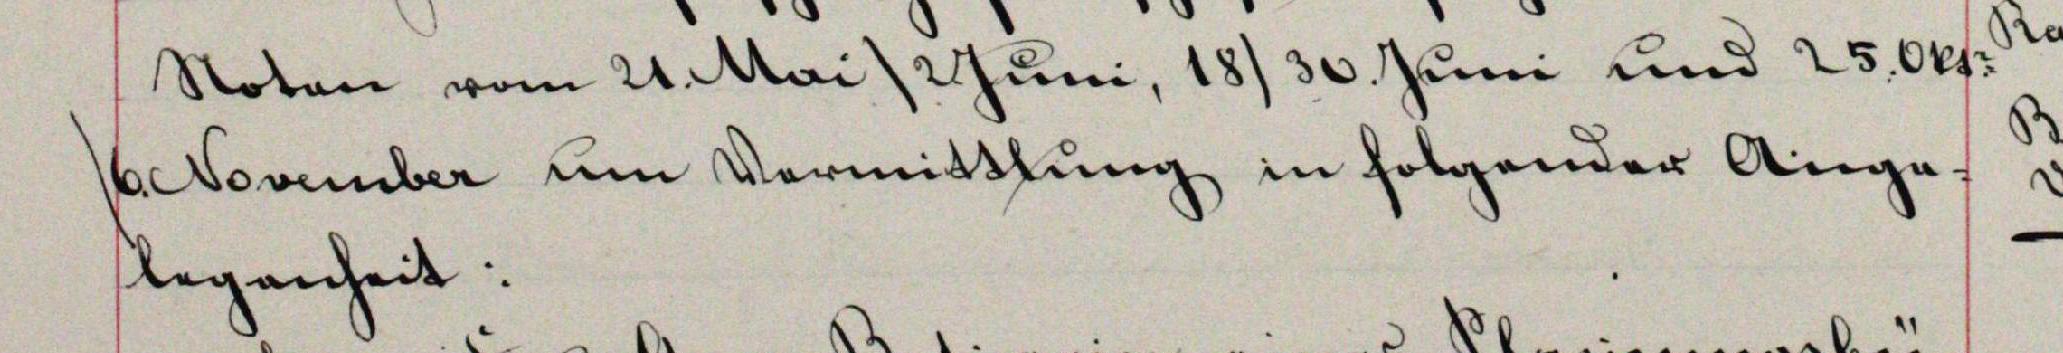 Noten vom 21. Mai \ 2 Juni, 18/30. Juni und 25. Okt.
\ 6. November um Vermittlung in folgender Ange-
legenheit :